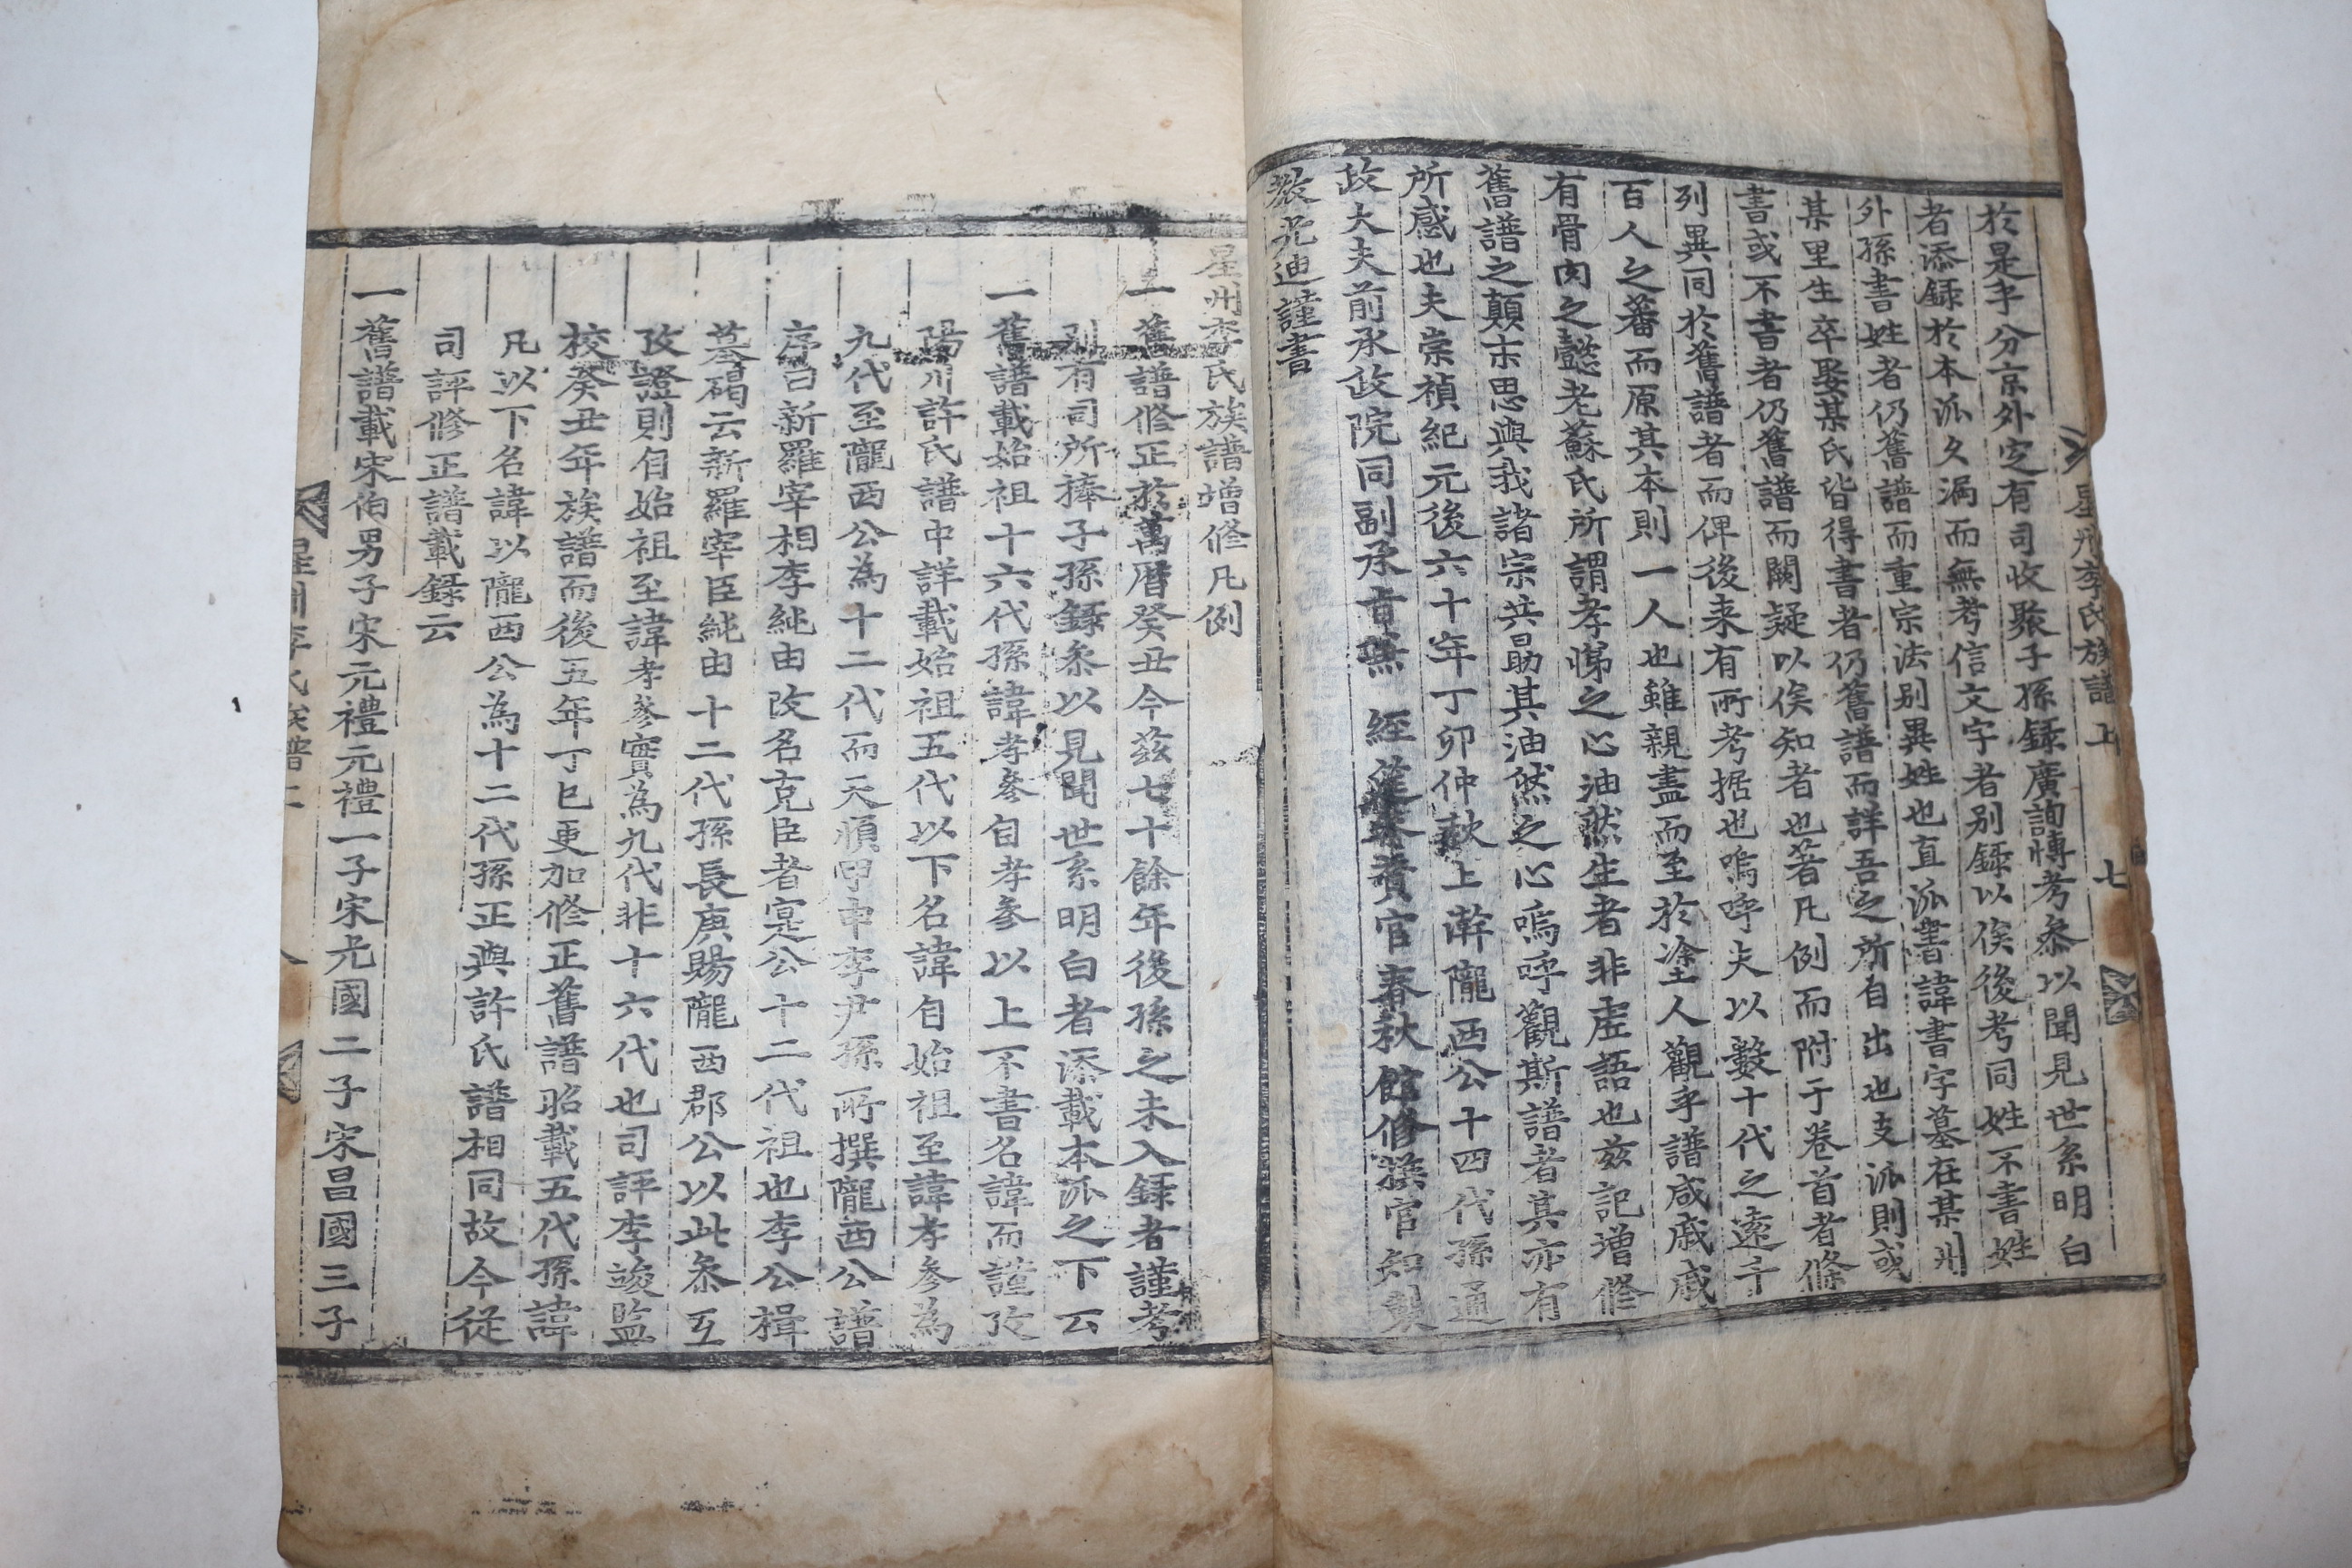 於是乎分京外定有司收聚子孫錄廣詢博考叅以聞見世系明白
者添錄於本派久漏而無考信文字者別錄以俟後考同姓不書姓
外孫書姓者仍舊譜而重宗法別異姓也直派書諱書字墓在某州
某里生卒娶某氏皆得書者仍舊譜而詳吾之所自出也支派則或
書或不書者仍舊譜而闕疑以俟知者也著凡例而附于卷首者條
列異同於舊譜者而俾後来有所考据也嗚呼夫以數十代之遠千
百人之蕃而原其本則一人也雖親盡而至於塗人觀乎譜咸戚戚
有骨肉之懿老蘇氏所謂孝悌之心油然生者非虗語也玆記增修
舊譜之顛末思與我諸宗共勗其油然之心嗚呼觀斯譜者其亦有
所感也夫崇禎紀元後六十年丁卯仲秋上澣隴西公十四代孫通
政大夫前承政院同副承旨兼 經筵參贊官春秋館修撰官知製
敎光迪謹書
星州李氏族譜上 七
星州李氏族譜增修凡例
一舊譜修正於萬曆癸丑今玆七十餘年後孫之未入錄者謹考
別有司所捧子孫錄叅以見聞世系明白者添載本派之下云
一舊譜載始祖十六代孫諱孝參自孝參以上不書名諱而謹攷
陽川許氏譜中詳載始祖五代以下名諱自始祖至諱孝參為
九代至隴西公為十二代而天順甲申李尹孫所撰隴西公譜
序曰新羅宰相李純由改名克臣者寔公十二代祖也李公楫
墓碣云新羅宰臣純由十二代孫長庚賜隴西郡公以此叅互
攷證則自始祖至諱孝參實為九代非十六代也司評李𥪡監
校癸丑年族譜而後五年丁巳更加修正舊譜昭載五代孫諱
凡以下名諱以隴西公為十二代孫正與許氏譜相同故今從
司評修正譜載錄云
一舊譜載宋伯男子宋元禮元禮一子宋光國二子宋昌國三子
星州李氏族譜上 八